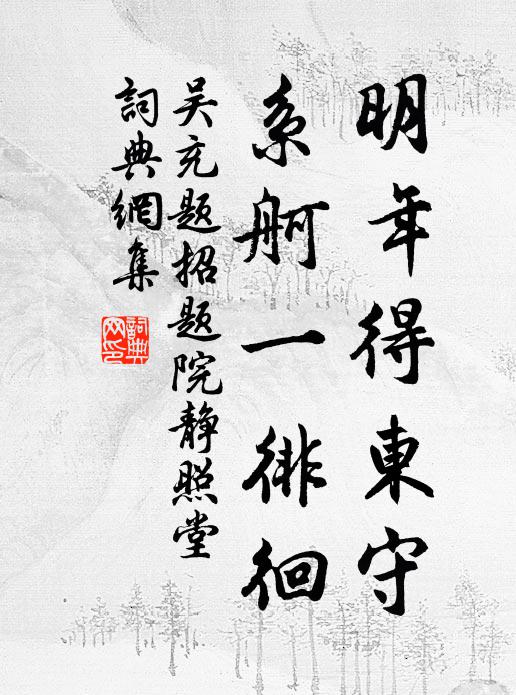 明年得東守
系舸一徘徊
吴充题招题院靜照堂
詞典網集
詞典網印